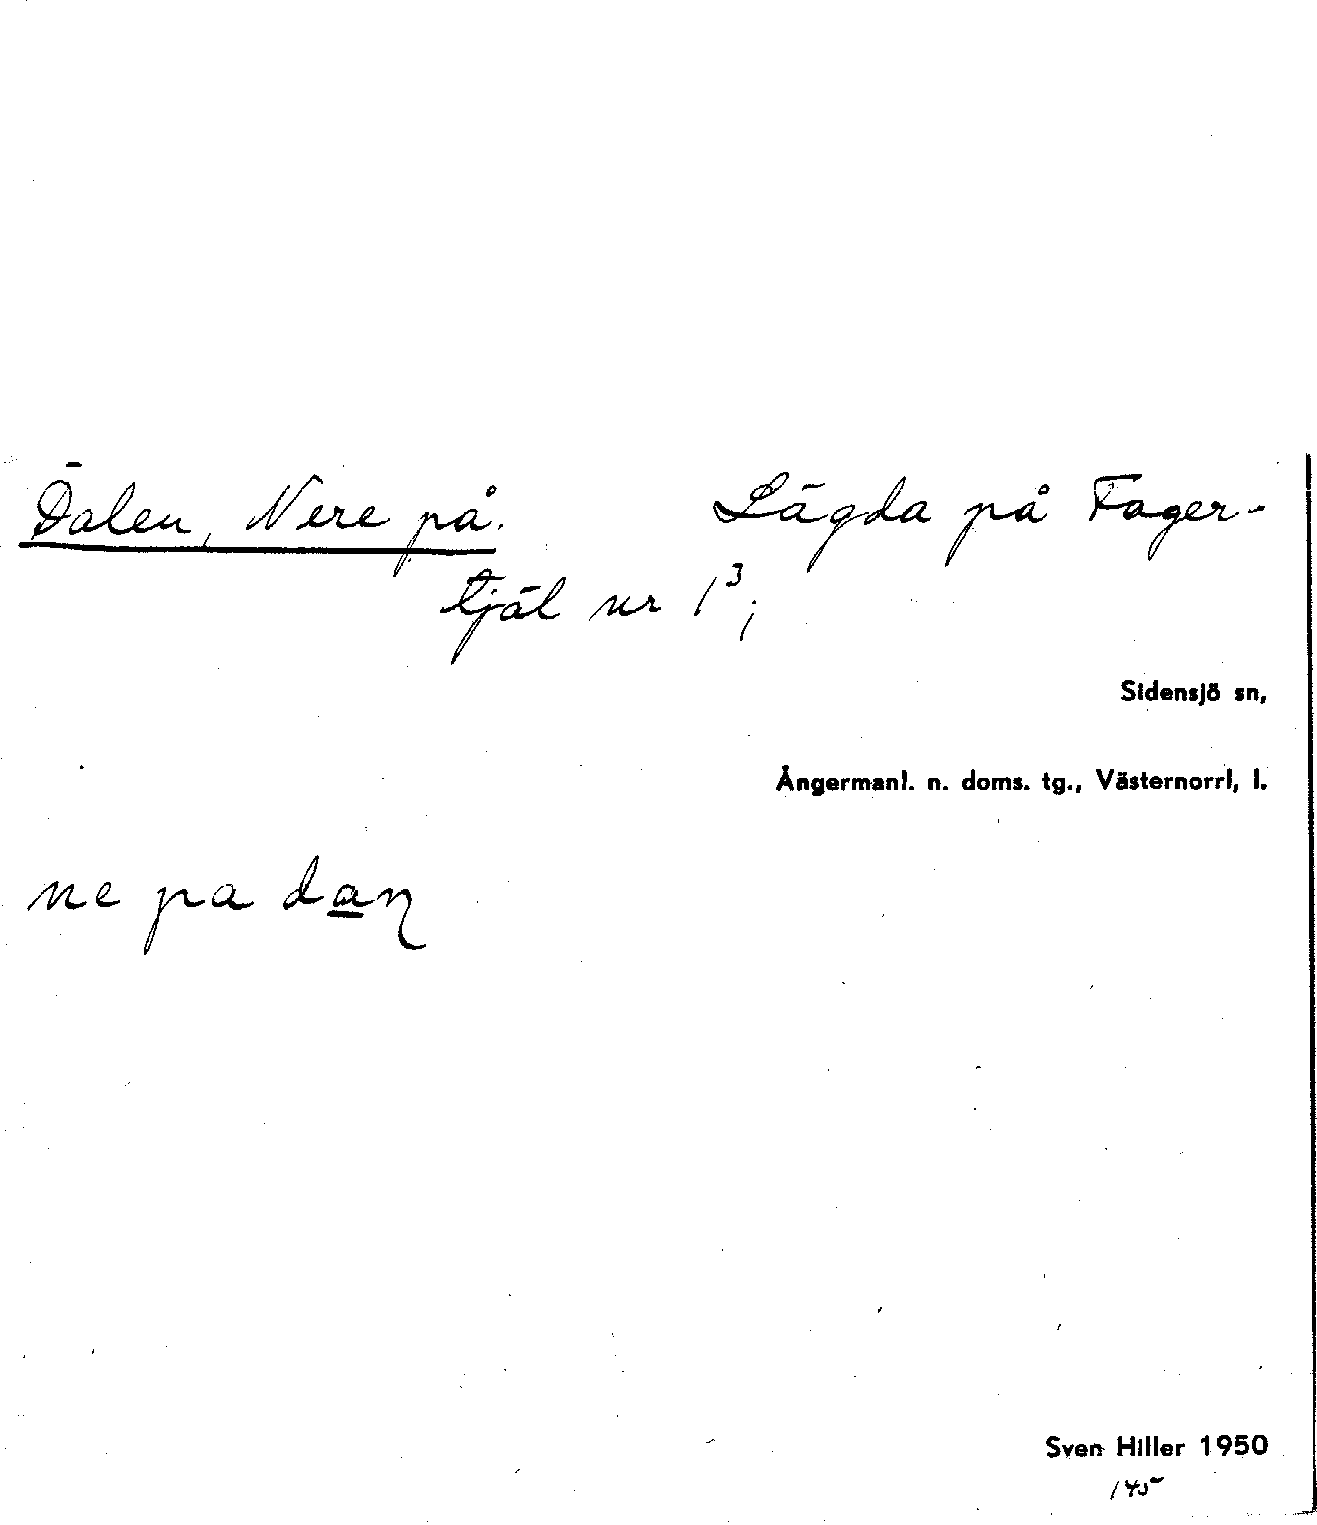 Dalen, Nere på. Lägda på Fager-
tjäl nr 1³;
Sidensjö sn,
Ångermanl. n. doms. tg., Västernorrl, l.
ne pa daṉ
Sven Hiller 1950
145